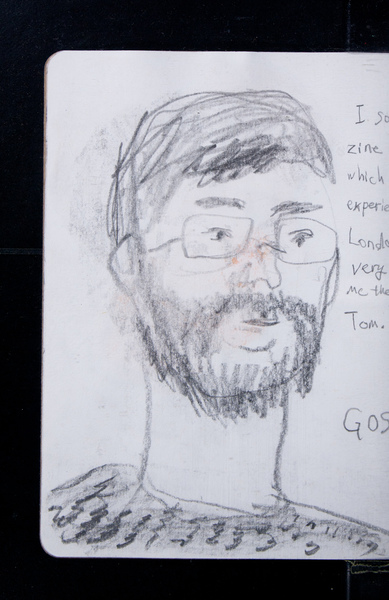 I so
zine
which
experie
Londo
very
me the
Tom.
GOS